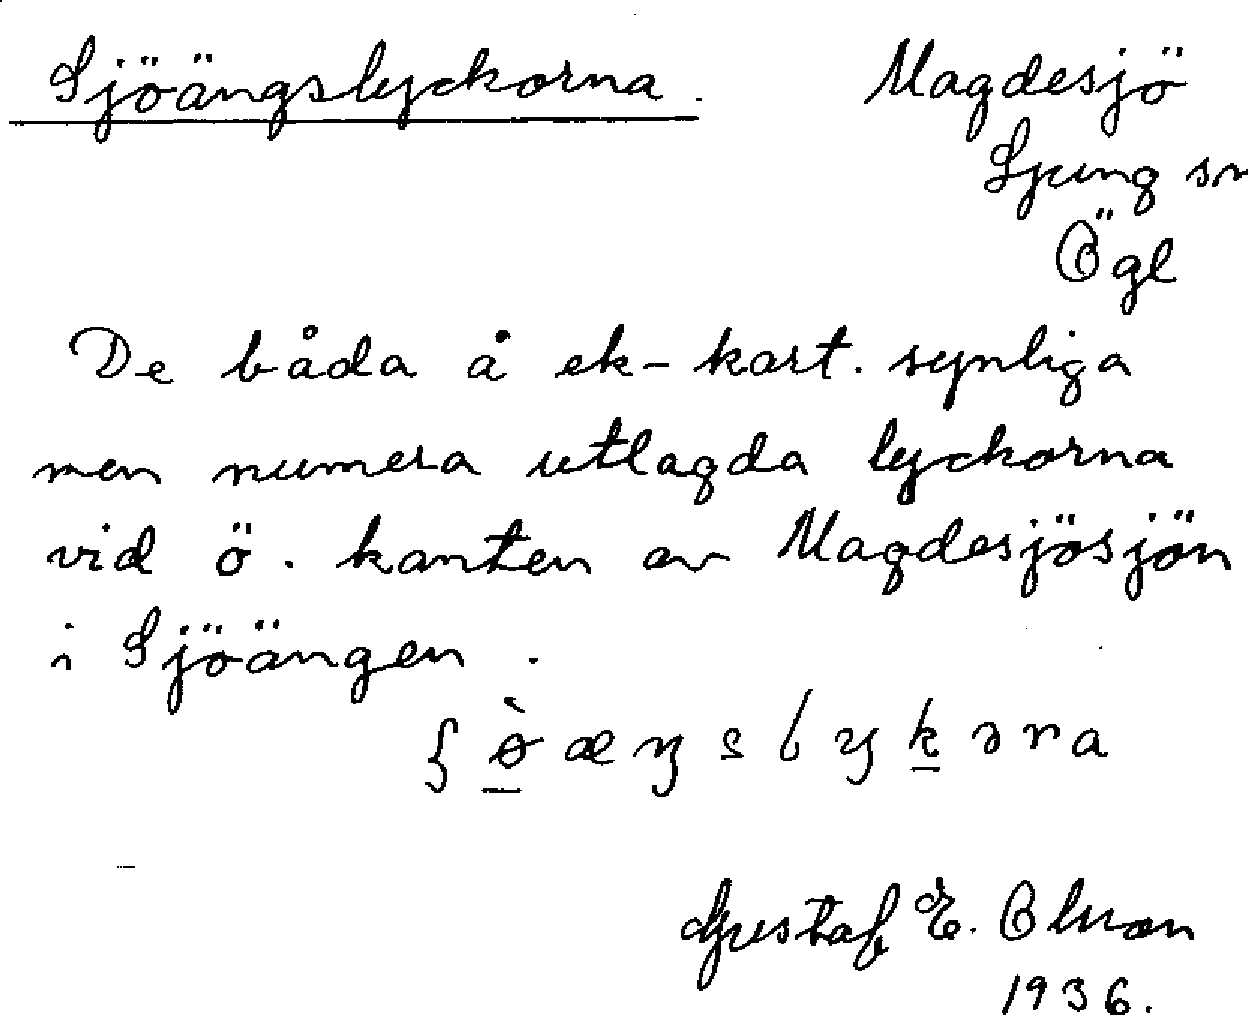 Sjöängslyckorna.
Magdesjö
Ljung sn
Ögl
De båda å ek-kart. synliga
men numera utlagda lyckorna
vid ö. kanten av Magdesjösjön
i Sjöängen.
Gustaf E. Olsson
1936.